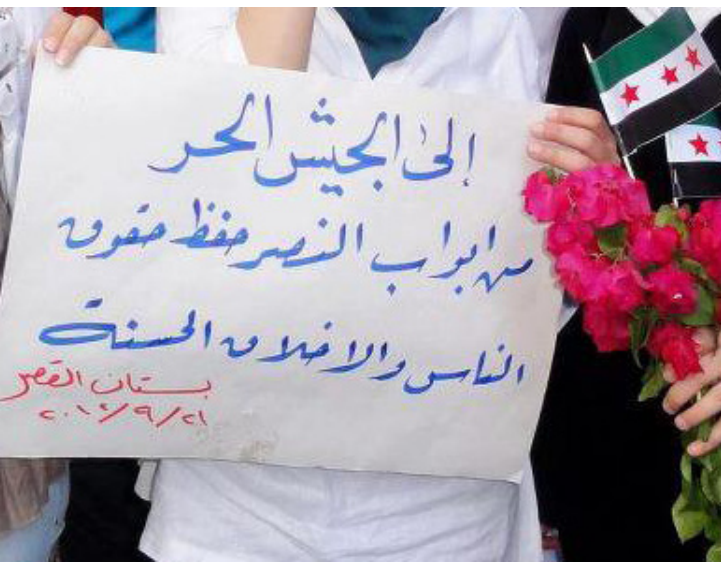 إلى الجيش الحر
من ابواب النصر حفظ حقوق
الناس والاخلاق الحسنة
بستان القصر
٢٠١٢/٩/٢١